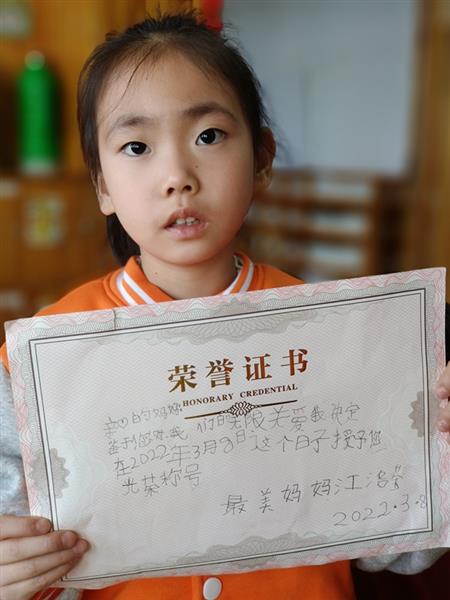 荣誉证书
HONORARY CREDENTIAL
亲的妈妈
鉴于您对我们的无限关爱我决定
在2022年3月8日这个日子授予您
光荣称号
最美妈妈江
2022.3.8